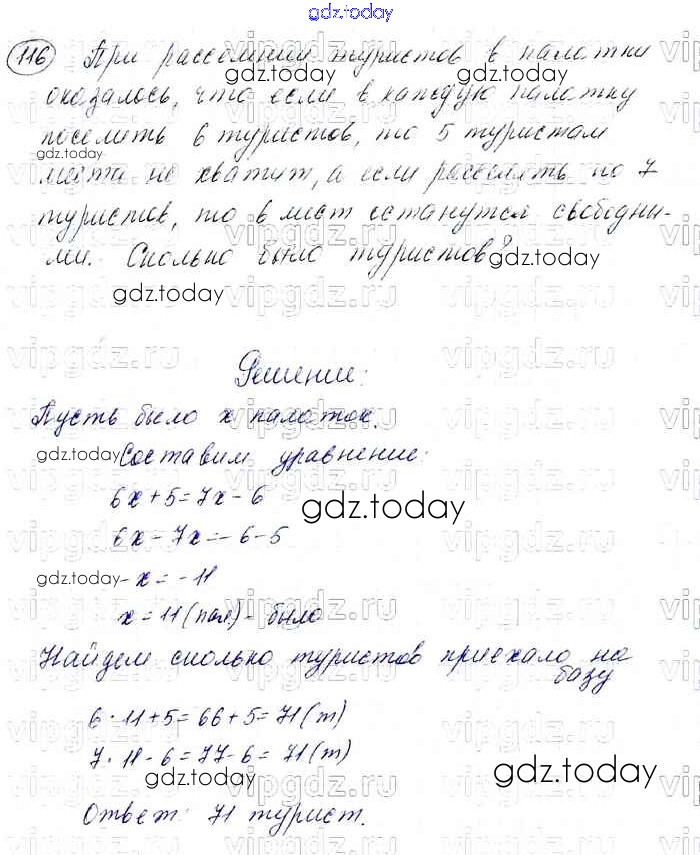 gdz.today
116 При расселении туристов в палатки
gdz.today gdz.today
оказалось, что если в каждую палатку
поселить 6 туристов, то 5 туристам
gdz.today
места не хватит, а если расселять по 7
туристов, то 6 мест останутся свободны-
ми. Сколько было туристов?
gdz.today
gdz.today
vipgdz.ru vipgdz.ru vipgdz.ru
Решение:
Пусть было x палаток.
gdz.today Составим уравнение:
6x+5=7x-6
gdz.today
6x-7x=-6-5
gdz.today -x=-11
x=11(пал)-было
Найдем сколько туристов приехало на
базу
6·11+5=66+5=71(т)
7·11-6=77-6=71(т)
gdz.today gdz.today
Ответ: 71 турист.